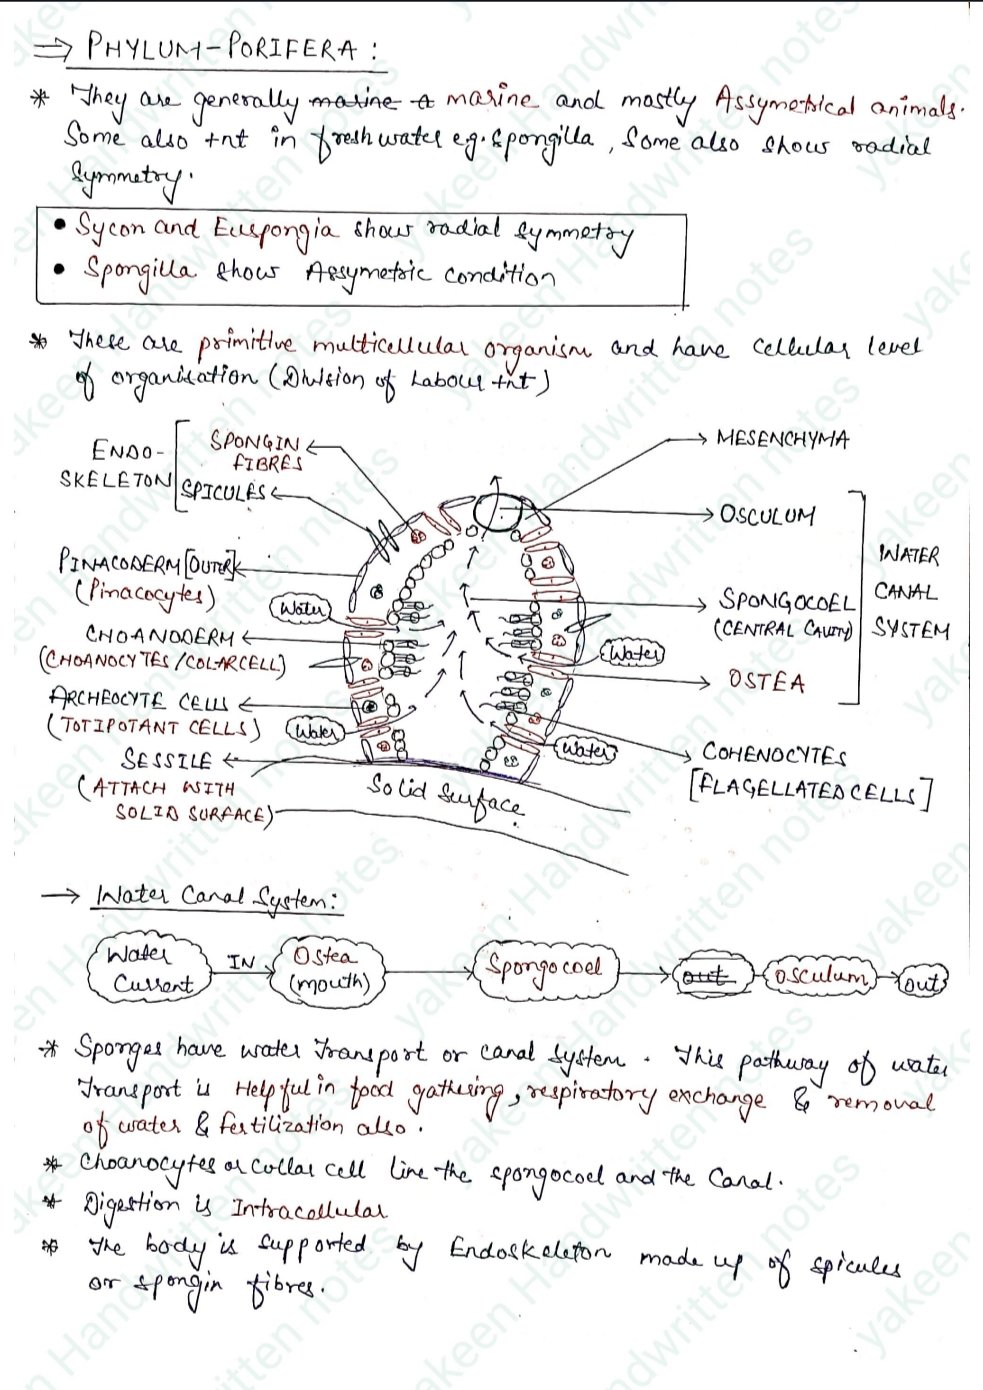 ⇒ PHYLUM-PORIFERA :
* They are generally marine & marine and mostly Assymetrical animals.
Some also +nt in freshwater eg. Spongilla, Some also show radial
Symmetry.
• Sycon and Euspongia show radial symmetry
• Spongilla show Assymetric condition
* These are primitive multicellular organism and have cellular level
of organisation (Division of Labour +nt)
ENDO-
SKELETON
SPONGIN
FIBRES
SPICULES
PINACODERM [OUTER]
(Pinacocytes)
Water
CHOANODERM
(CHOANOCYTES/COLARCELL)
ARCHEOCYTE CELLS
(TOTIPOTANT CELLS)
Water
SESSILE
(ATTACH WITH
SOLID SURFACE)
Solid Surface
MESENCHYMA
OSCULUM
SPONGOCOEL
(CENTRAL CAVITY)
Water
OSTEA
WATER
CANAL
SYSTEM
Water
COHENOCYTES
[FLAGELLATED CELLS]
→ Water Canal System:
Water
Current
IN
Ostea
(mouth)
Spongocoel
out
osculum
out
* Sponges have water Transport or canal system. This pathway of water
Transport is Helpful in food gathering, respiratory exchange & removal
of water & fertilization also.
* Choanocytes or Collar cell line the spongocoel and the Canal.
* Digestion is Intracellular
* The body is supported by Endoskeleton made up of spicules
or spongin fibres.
yakeen Handwritten notes